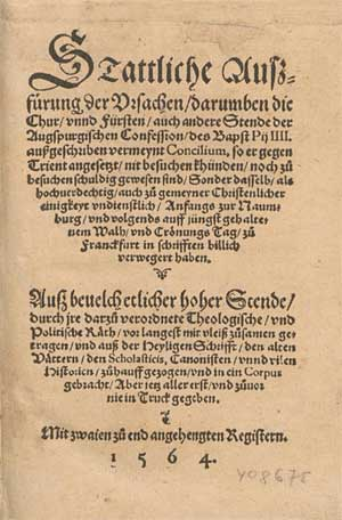 STattliche Auß-
fürung der Vrsachen/darumben die
Chur/vnnd Fürsten/auch andere Stende der
Augspurgischen Confession/des Bapst Pij IIII.
außgeschriben vermeynt Concilium, so er gegen
Trient angesetzt/nit besuchen khünden/noch zů
besuchen schuldig gewesen sind/Sonder dasselb/als
hochuerdechtig/auch zů gemeyner Christenlicher
einigkeyt vndienstlich/Anfangs zur Naum-
burg/vnd volgends auff jüngst gehalte-
nem Walh/vnd Crönungs Tag/zů
Franckfurt in schrifften billich
verwegert haben.
Auß beuelch etlicher hoher Stende/
durch jre darzů verordnete Theologische/vnd
Politische Räth/vor langest mit vleiß zůsamen ge-
tragen/vnd auß der Heyligen Schrifft/den alten
Vättern/den Scholasticis, Canonisten/vnnd vilen
Historien/zůhauff gezogen/vnd in ein Corpus
gebracht/Aber ietz aller erst/vnd zůuor
nie in Truck gegeben.
Mit zwaien zů end angehengten Registern.
1564.
408675